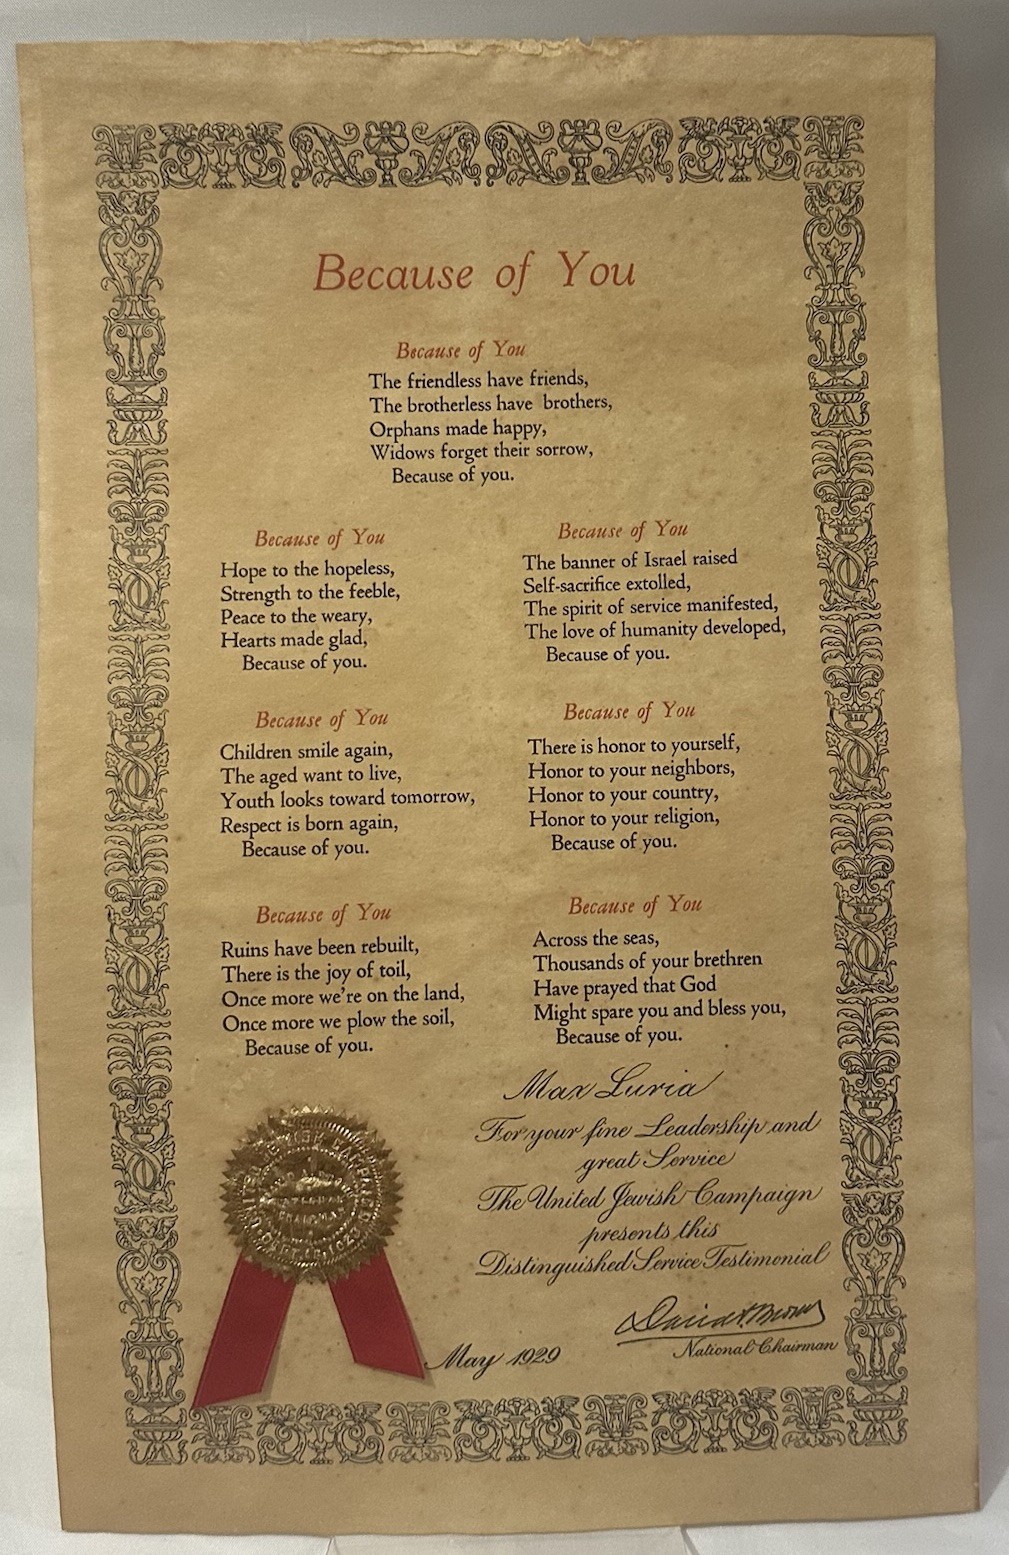 Because of You
Because of You
The friendless have friends,
The brotherless have brothers,
Orphans made happy,
Widows forget their sorrow,
Because of you.
Because of You
Hope to the hopeless,
Strength to the feeble,
Peace to the weary,
Hearts made glad,
Because of you.
Because of You
Children smile again,
The aged want to live,
Youth looks toward tomorrow,
Respect is born again,
Because of you.
Because of You
Ruins have been rebuilt,
There is the joy of toil,
Once more we're on the land,
Once more we plow the soil,
Because of you.
Because of You
The banner of Israel raised
Self-sacrifice extolled,
The spirit of service manifested,
The love of humanity developed,
Because of you.
Because of You
There is honor to yourself,
Honor to your neighbors,
Honor to your country,
Honor to your religion,
Because of you.
Because of You
Across the seas,
Thousands of your brethren
Have prayed that God
Might spare you and bless you,
Because of you.
Max Luria
For your fine Leadership and
great Service
The United Jewish Campaign
presents this
Distinguished Service Testimonial
National Chairman
May 1929